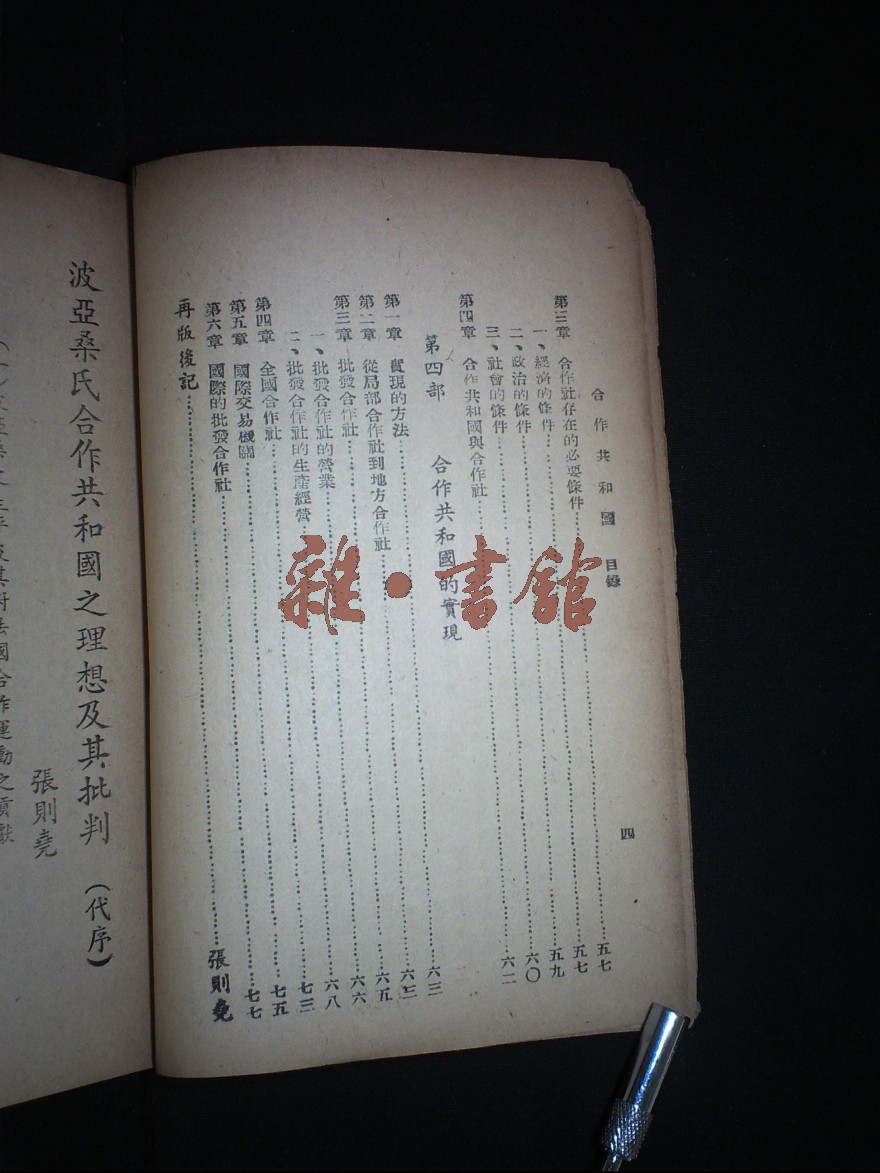 合作共和國 目錄 四
第三章 合作社存在的必要條件……五七
一、經濟的條件……五七
二、政治的條件……五九
三、社會的條件……六〇
第四章 合作共和國與合作社……六二
第四部 合作共和國的實現
第一章 實現的方法……六三
第二章 從局部合作社到地方合作社……六三
第三章 批發合作社……六五
一、批發合作社的營業……六六
二、批發合作社的生產經營……六八
第四章 全國合作社……七三
第五章 國際交易機關……七五
第六章 國際的批發合作社……七七
再版後記……張則堯
波亞桑氏合作共和國之理想及其批判 (代序)
張則堯
及其對法國合作運動之貢獻
雜·書館